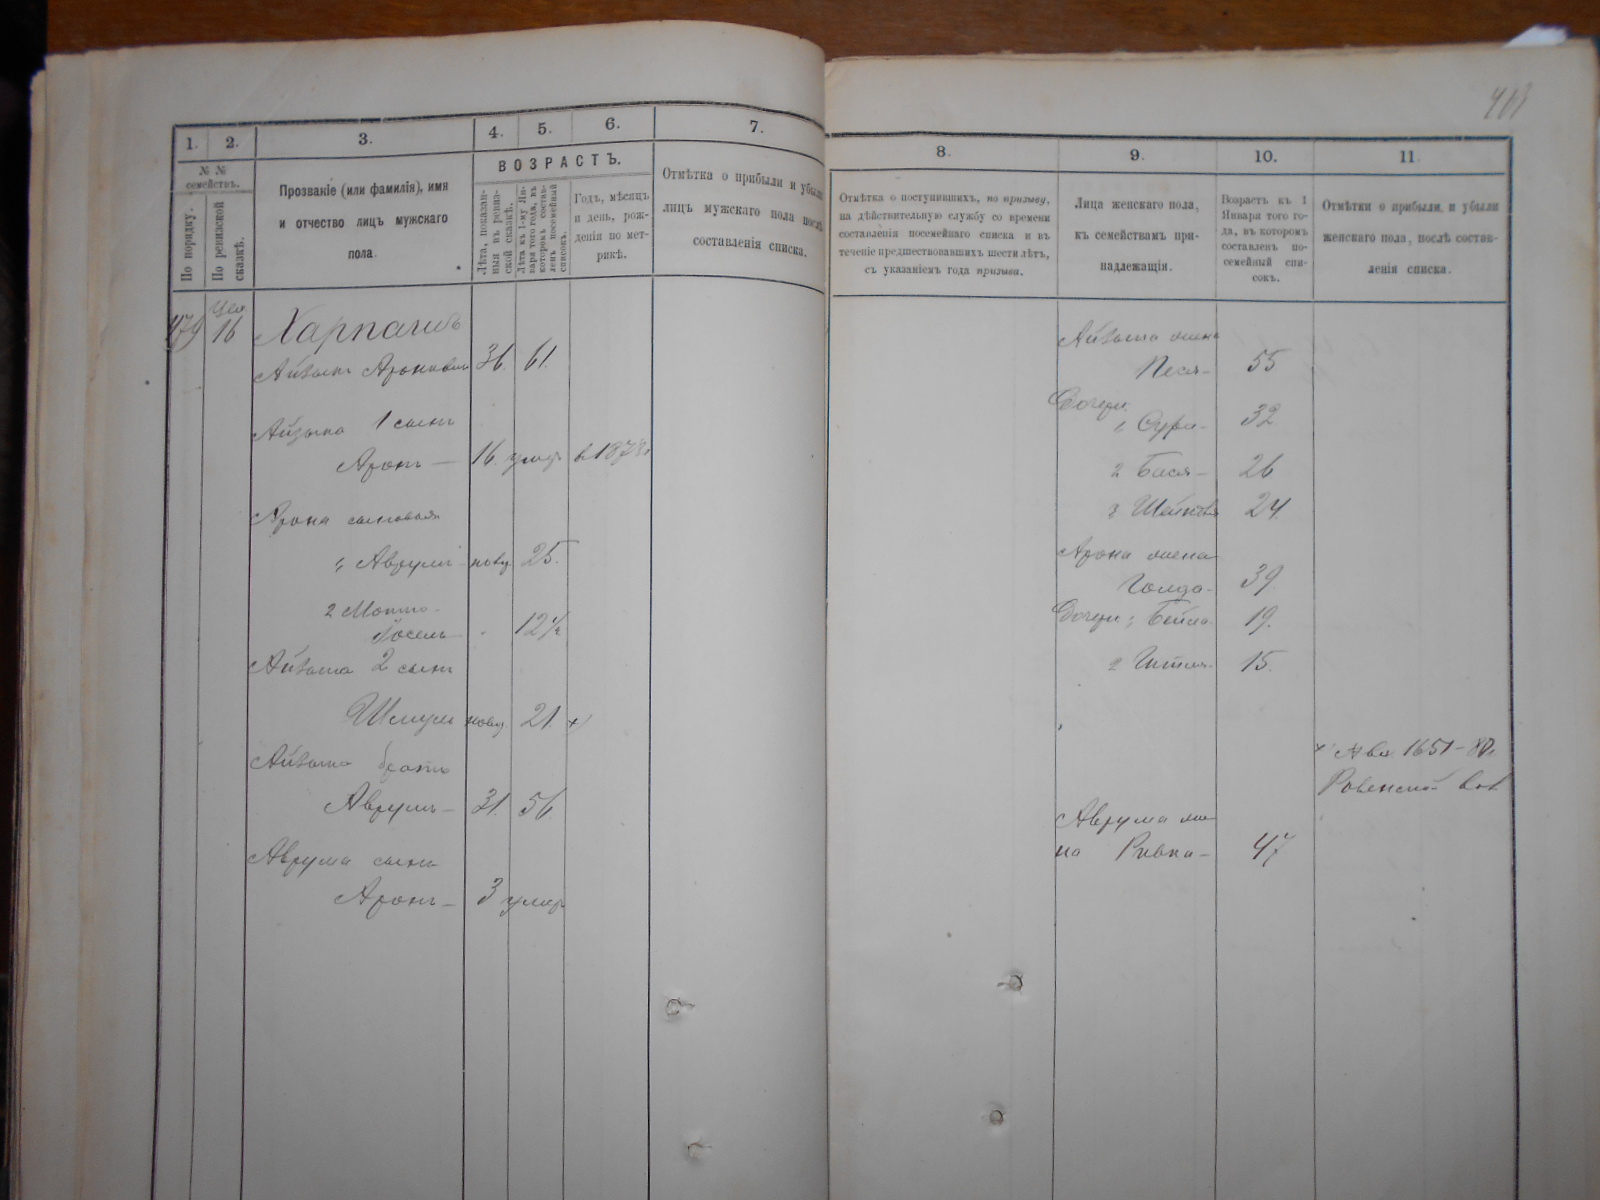 403
1.
2.
3.
4.
5.
6.
7.
№ №
семействъ.
По порядку.
По ревизской
сказкѣ.
Прозваніе (или фамилія), имя
и отчество лицъ мужскаго
пола.
ВОЗРАСТЪ.
Лѣта, показан-
ныя въ ревиз-
ской сказкѣ.
Лѣта къ 1-му Ян-
варя того года, въ
которомъ состав-
ленъ посемейный
списокъ.
Годъ, мѣсяцъ
и день, рож-
денія по мет-
рикѣ.
Отмѣтка о прибыли и убыли
лицъ мужскаго пола послѣ
составленія списка.
479 16 Харпачъ
Айзыкъ Ароновичъ 36. 61.
Айзыка 1 сынъ
Аронъ — 16. умер. в 1873 г
Арона сыновья
1, Аврумъ новор. 25.
2 Мошко-
Іосель 12 1/2
Айзыка 2 сынъ
Шмуль новор. 21. x)
Айзыка братъ
Аврумъ — 31. 56
Аврума сынъ
Аронъ — 3 умер.
8.
9.
10.
11.
Отмѣтка о поступившихъ, по призыву,
на дѣйствительную службу со времени
составленія посемейнаго списка и въ
теченіе предшествовавшихъ шести лѣтъ,
съ указаніемъ года призыва.
Лица женскаго пола,
къ семействамъ при-
надлежащія.
Возрастъ къ 1
Января того го-
да, въ которомъ
составленъ по-
семейный спи-
сокъ.
Отмѣтки о прибыли, и убыли
женскаго пола, послѣ состав-
ленія списка.
Айзыка жена
Песя — 55
Дочери:
1, Сура — 32
2 Бася — 26
3 Шейндля 24.
Арона жена
Голда — 39.
Дочери 1, Бейла 19.
2 Гитля 15.
x) 1651 — 80 г.
Ровенской
Аврума же-
на Ривка — 47